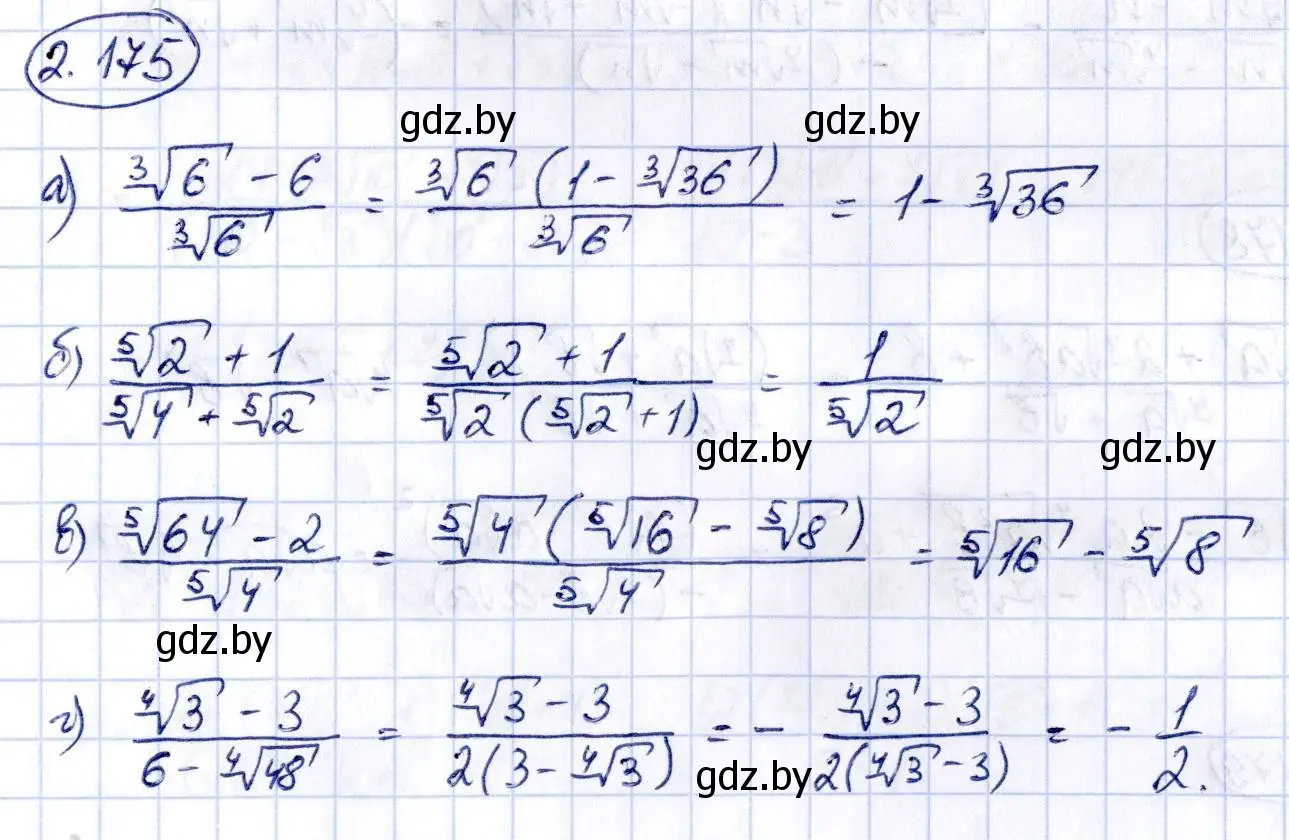 2.175
gdz.by gdz.by
а) (∛6 - 6)/∛6 = ∛6 (1 - ∛36)/∛6 = 1 - ∛36
б) (⁵√2 + 1)/(⁵√4 + ⁵√2) = (⁵√2 + 1)/(⁵√2 (⁵√2 + 1)) = 1/⁵√2
gdz.by gdz.by
в) (⁵√64 - 2)/⁵√4 = ⁵√4 (⁵√16 - ⁵√8)/⁵√4 = ⁵√16 - ⁵√8
gdz.by
г) (⁴√3 - 3)/(6 - ⁴√48) = (⁴√3 - 3)/(2(3 - ⁴√3)) = - (⁴√3 - 3)/(2(⁴√3 - 3)) = - 1/2.
gdz.by